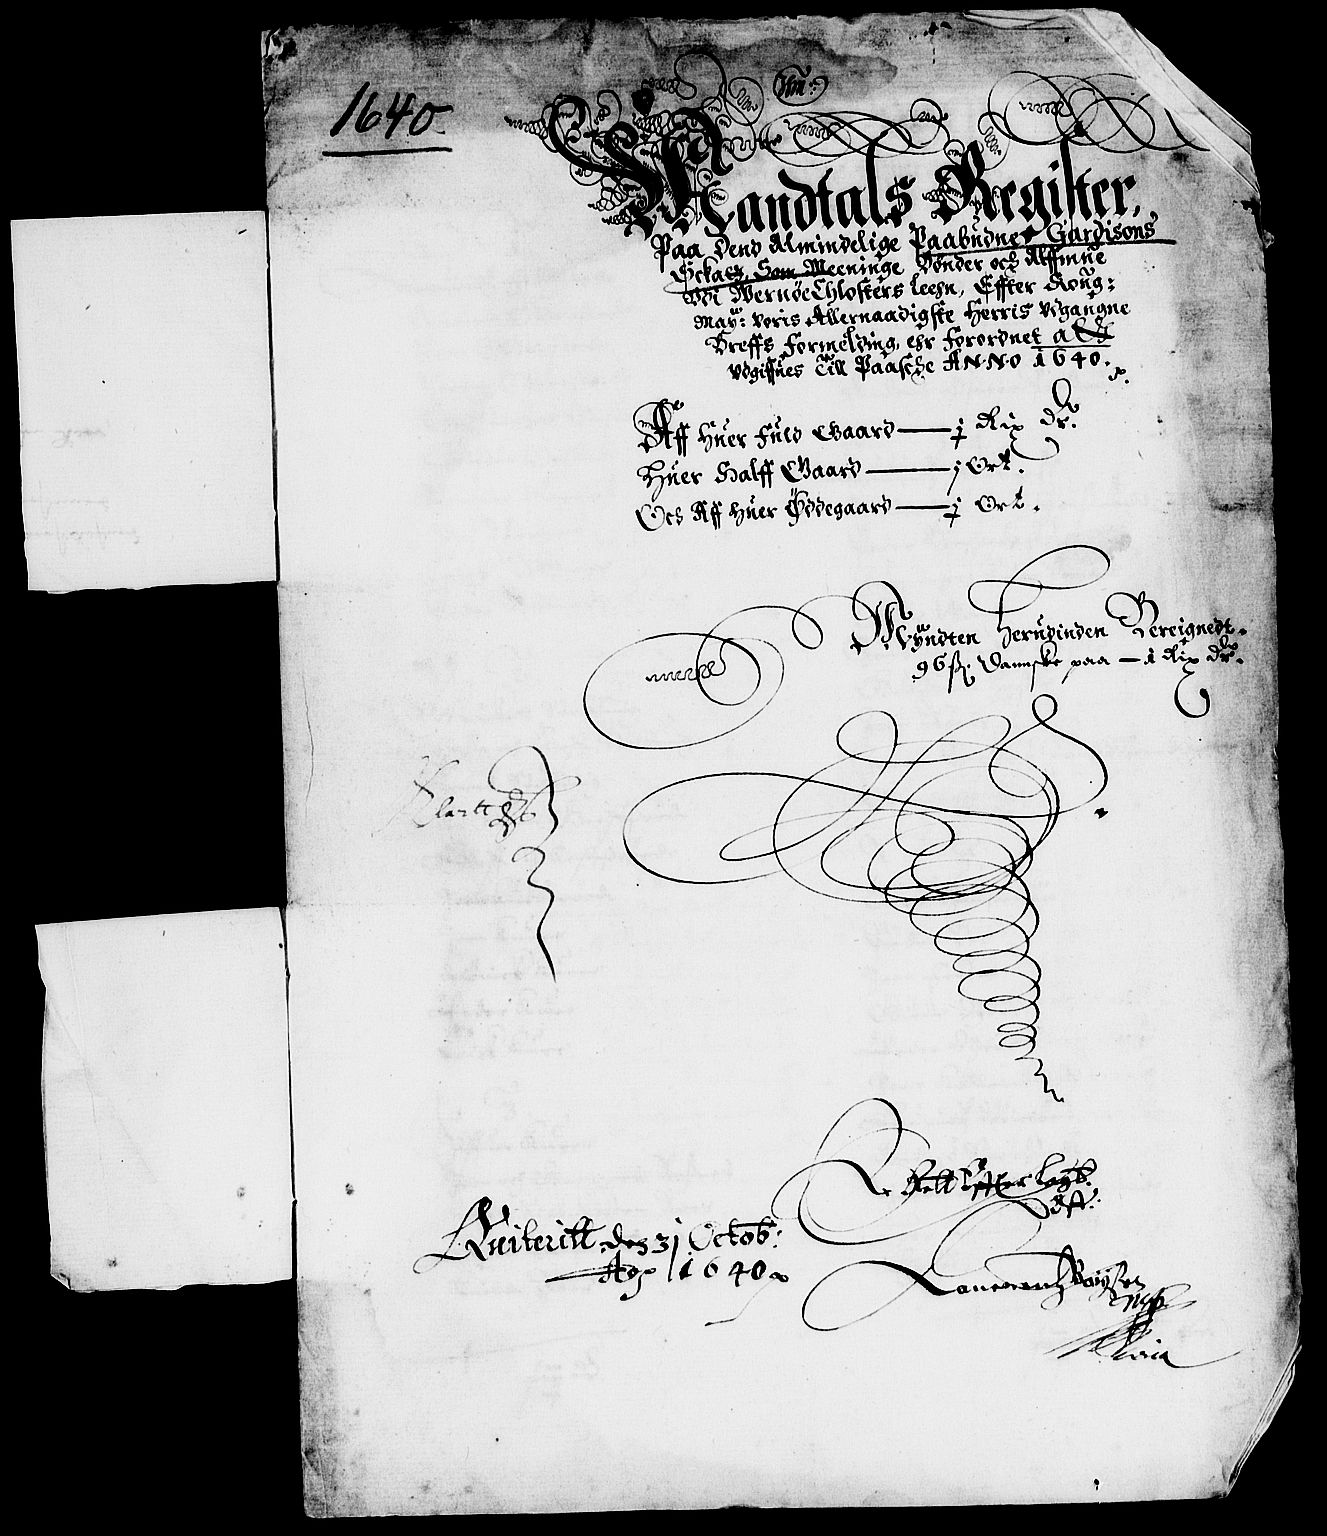 1640.
Mandtals Register,
Paa dend Almindelige Paabudne Gardisons
Sckatz, Som Meeninge Bønder och Allmue
Vdi Wernøe Chlosters leehn, Effter Kong:
May: voris Allernaadigste Herris vdgangne
Breffs Formelding, ehr Forordnet att
vdgiffues Till Paasche ANNO 1640.
Aff huer Fuld Gaard — j Rix dr.
Huer Halff Gaard — j Ort.
Och Aff huer Øddegaard — j Ort.
Myndten herudinden Bereignedt.
96 ß. Danske paa — 1 Rix dr.
Quiteritt den 31 Octob:
Ao 1640